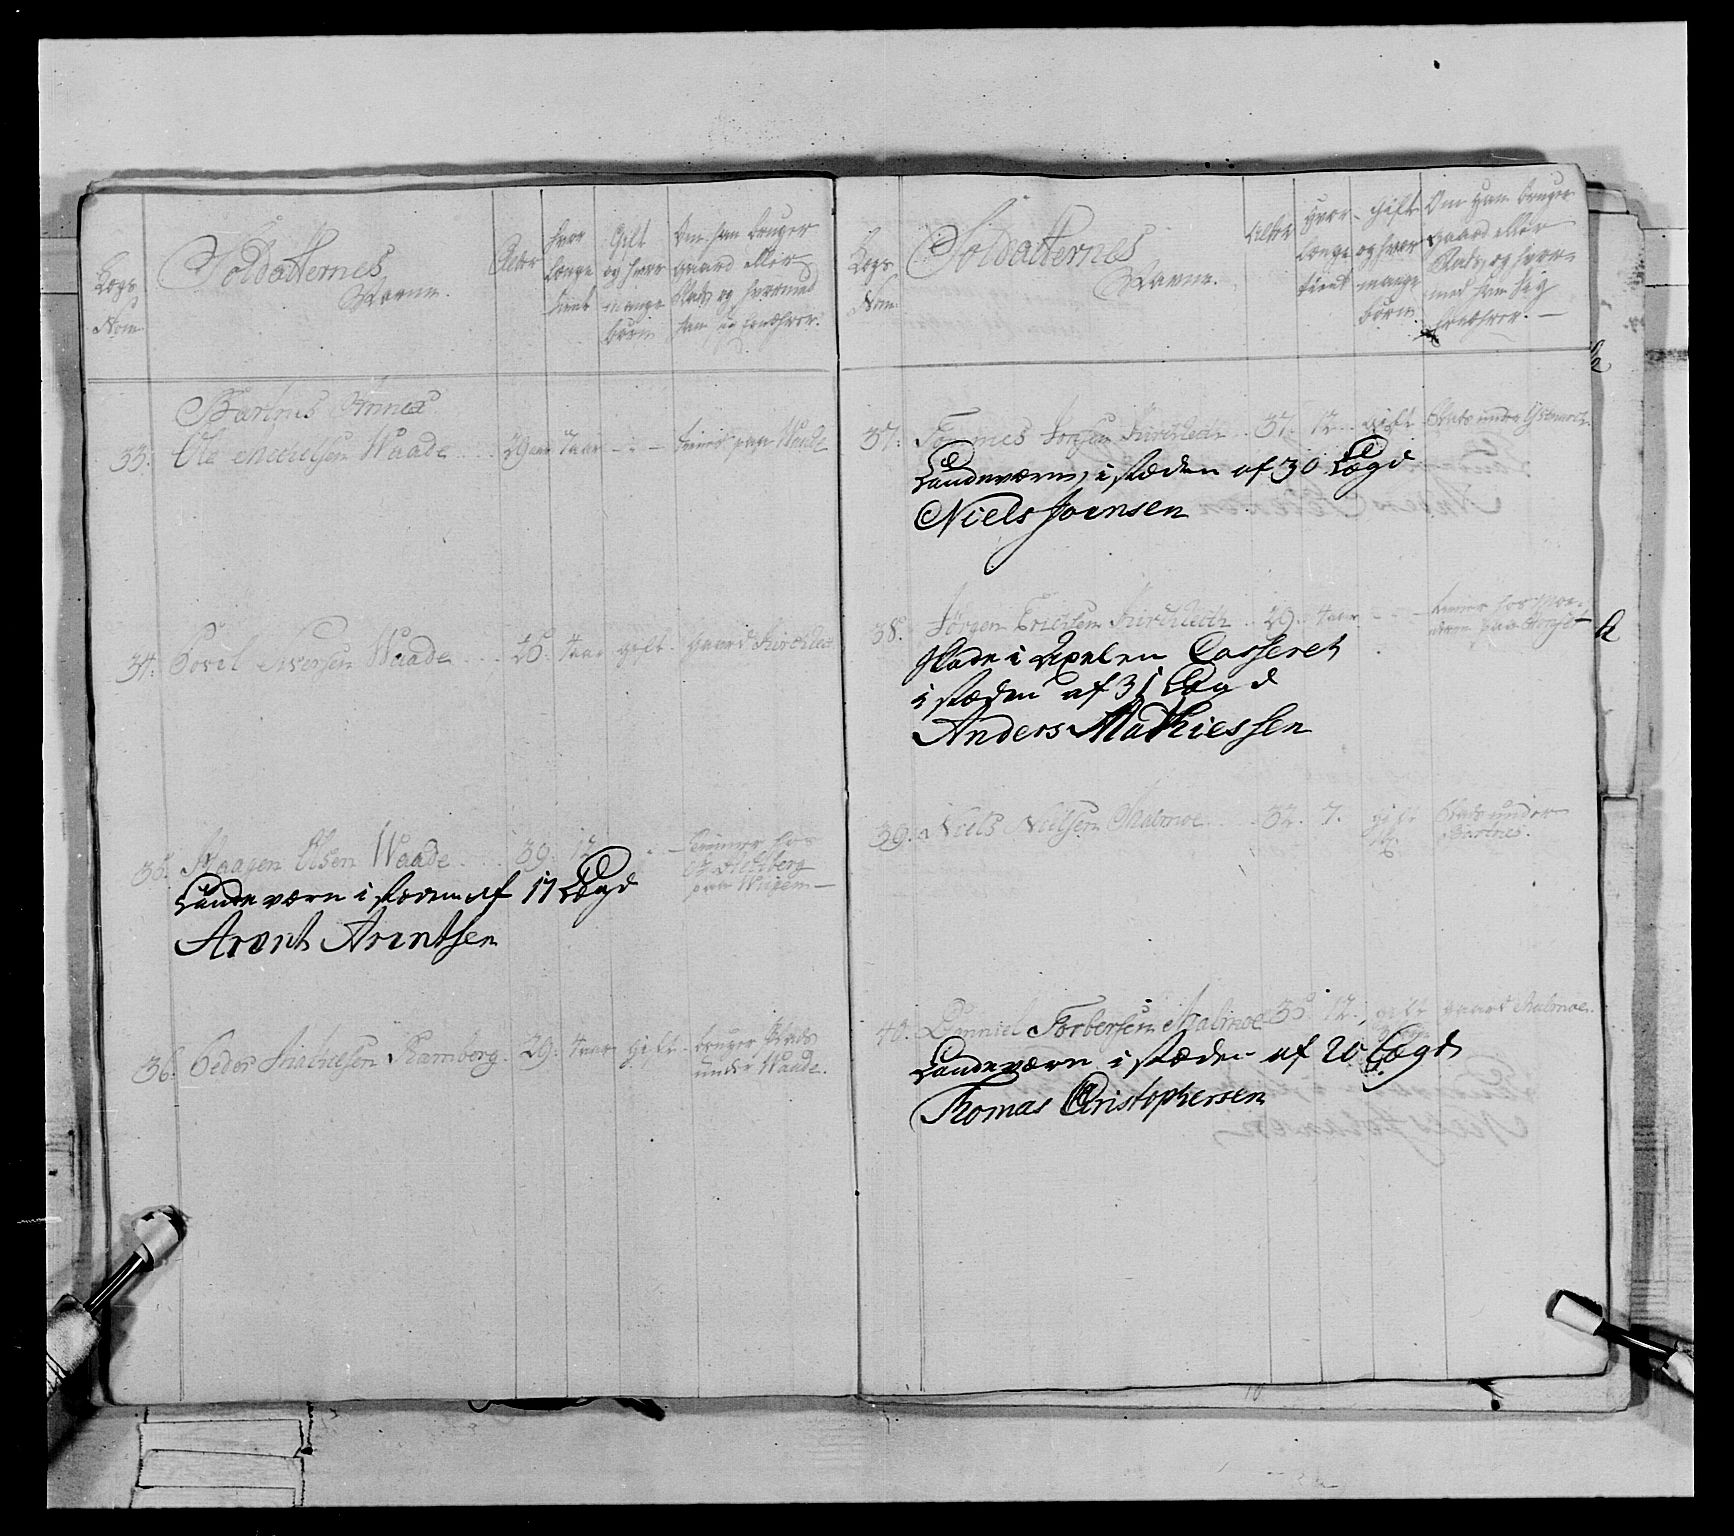 Lægs
Nom
Soldatternes
Navne.
Alder
hvor
længe
tient
Gift
og hvor
mange
børn
Om han bruger
gaard eller
Plads og hvormed
han sig ernærer.
Bartnes Annex
33. Ole Michelsen Waade 29 aar 4 aar - - tiener paa Waade
34. Povel Iversen Waade 26. 4 aar gift. gaard
35. Haagen Olsen Waade 39. 12 -
Landeværn i stæden af 17 Lægd
Arent Arentsen
36. Peder Mathiesen Ramberg. 29. 4 aar gift. bruger Plads
under Waade.
Lægs
Nom
Soldatternes
Navne.
Alder
hvor
længe
tient
gift
og hvor
mange
børn
Om Han bruger
gaard eller
Plads, og hvor-
med han sig
ernærer.
37. Jonsen 37. 12. gift Plads under
Landeværn, i stæden af 30 Lægd
Niels Joensen
38. Jørgen Erichsen 29. 4 aar - -
i stæden af 31 Lægd
Anders Mathiessen
39. Niels Nielsen Malmoe 32. 7. gift Plads under
Bartnes.
40. Torbersen Malmoe 12. gift gaard Malmoe.
Landeværn i stæden af 20 Lægd
Thomas Christophersen